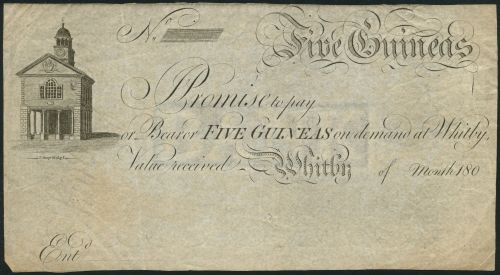 No
Five Guineas
Promise to pay
or Bearer FIVE GUINEAS on demand at Whitby,
Value received Whitby of Month 180
Ent.